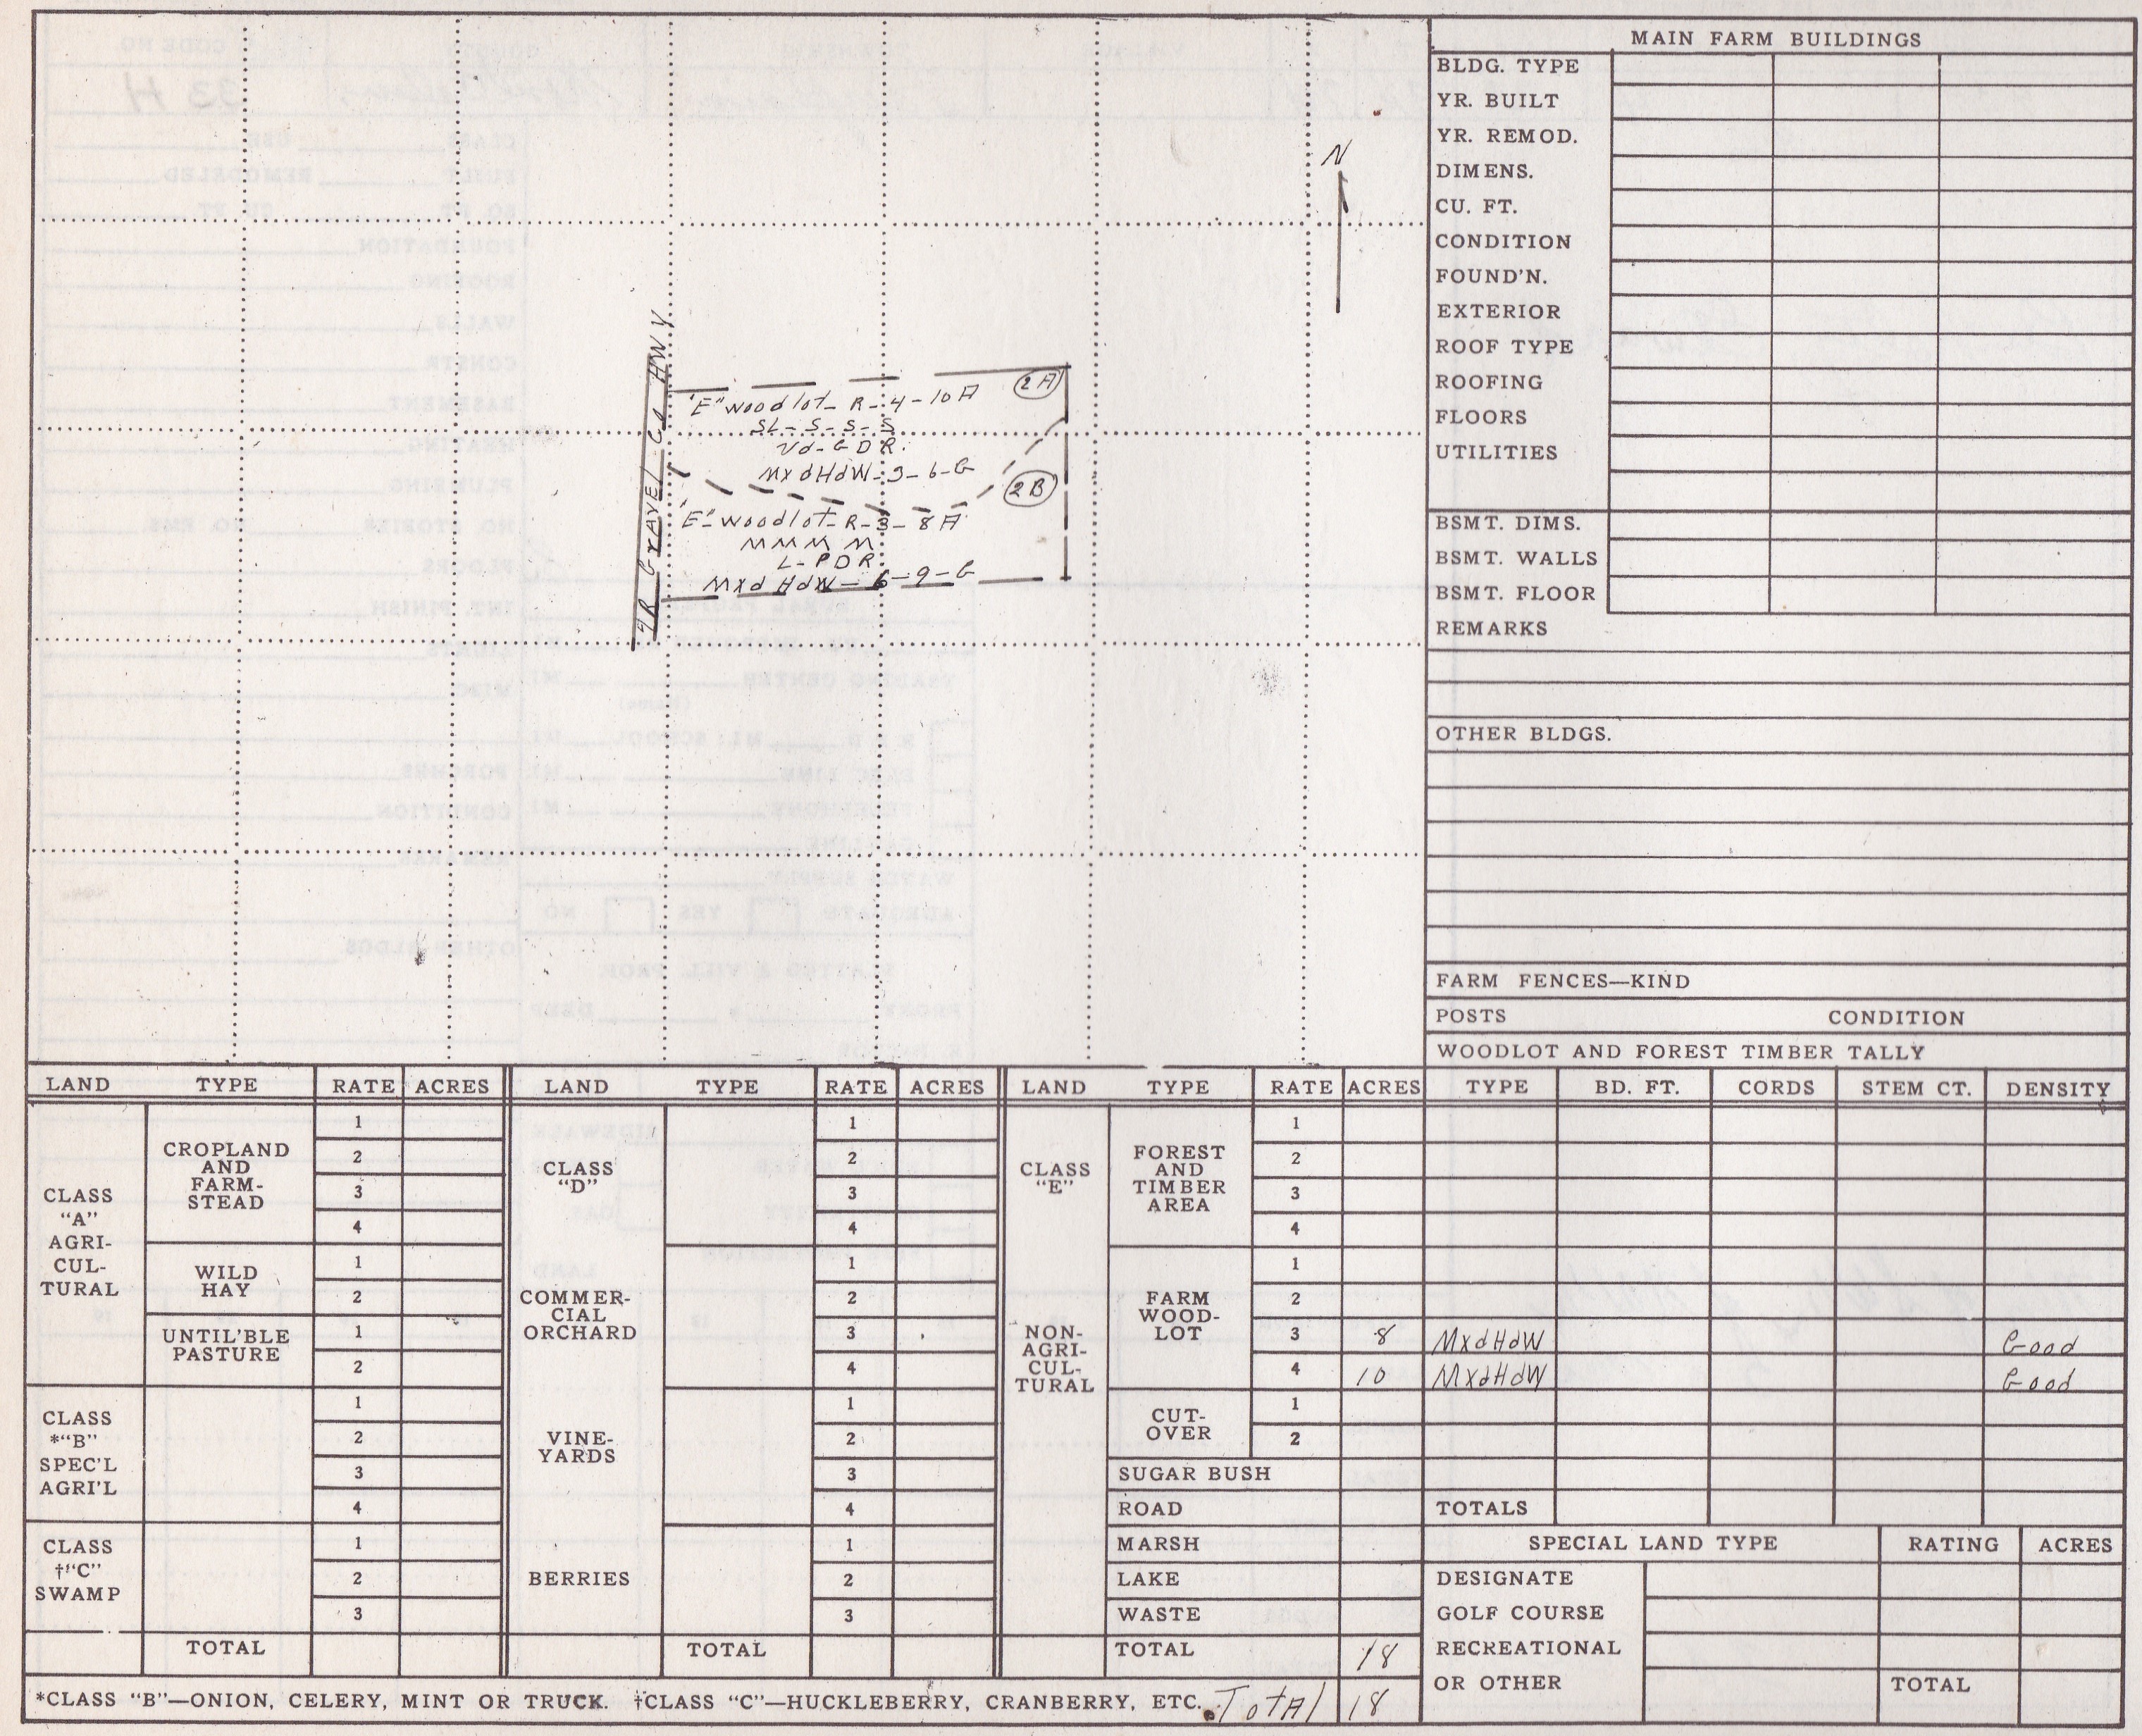 MAIN FARM BUILDINGS
BLDG. TYPE
YR. BUILT
YR. REMOD.
DIMENS.
CU. FT.
CONDITION
FOUND'N.
EXTERIOR
ROOF TYPE
ROOFING
FLOORS
UTILITIES
BSMT. DIMS.
BSMT. WALLS
BSMT. FLOOR
REMARKS
OTHER BLDGS.
FARM FENCES—KIND
POSTS CONDITION
N
GRAVEL CO HWY
2A
"E" woodlot - R - 4 - 10 A
SL - S - S - S
Vd - G D R.
MxdHdW - 3 - 6 - G
2B
"E" - woodlot - R - 3 - 8 A
M M M M
L - P D R
Mxd HdW - 6 - 9 - G
WOODLOT AND FOREST TIMBER TALLY
LAND TYPE RATE ACRES LAND TYPE RATE ACRES LAND TYPE RATE ACRES TYPE BD. FT. CORDS STEM CT. DENSITY
CLASS
"A"
AGRI-
CUL-
TURAL
CROPLAND
AND
FARM-
STEAD
1
2
3
4
WILD
HAY
1
2
UNTIL'BLE
PASTURE
1
2
CLASS
*"B"
SPEC'L
AGRI'L
1
2
3
4
CLASS
†"C"
SWAMP
1
2
3
TOTAL
CLASS
"D"
1
2
3
4
COMMER-
CIAL
ORCHARD
1
2
3
4
VINE-
YARDS
1
2
3
4
BERRIES
1
2
3
TOTAL
CLASS
"E"
NON-
AGRI-
CUL-
TURAL
FOREST
AND
TIMBER
AREA
1
2
3
4
FARM
WOOD-
LOT
1
2
3 8 MxdHdW Good
4 10 MxdHdW Good
CUT-
OVER
1
2
SUGAR BUSH
ROAD
MARSH
LAKE
WASTE
TOTAL 18
TOTALS
SPECIAL LAND TYPE RATING ACRES
DESIGNATE
GOLF COURSE
RECREATIONAL
OR OTHER
TOTAL
*CLASS "B"—ONION, CELERY, MINT OR TRUCK. †CLASS "C"—HUCKLEBERRY, CRANBERRY, ETC. Total 18